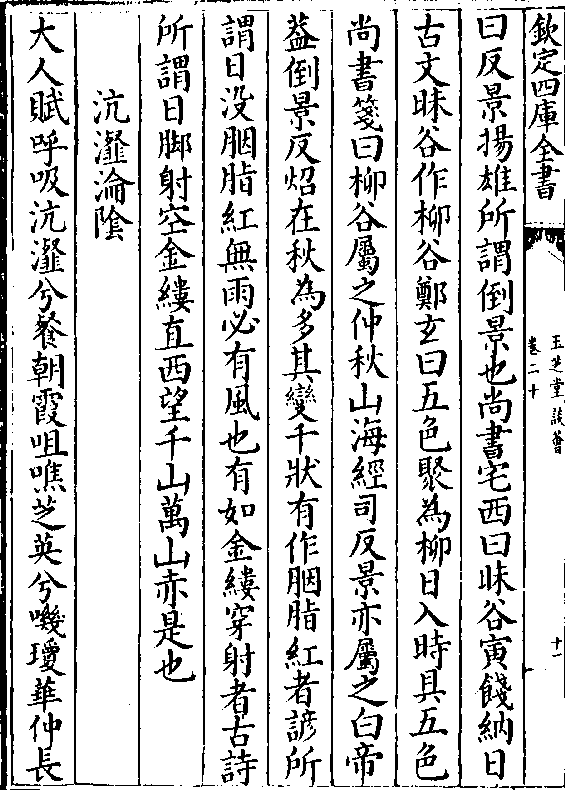 欽定四庫全書
玉芝堂談薈
卷二十
十一
曰反景揚雄所謂倒景也尚書宅西曰昧谷寅餞納日
古文昧谷作柳谷鄭玄曰五色聚為柳日入時具五色
尚書箋曰柳谷屬之仲秋山海經司反景亦屬之白帝
葢倒景反炤在秋為多其變千狀有作胭脂紅者諺所
謂日没胭脂紅無雨必有風也有如金縷穿射者古詩
所謂日脚射空金縷直西望千山萬山赤是也
沆瀣淪陰
大人賦呼吸沆瀣兮餐朝霞咀噍芝英兮嘰瓊華仲長